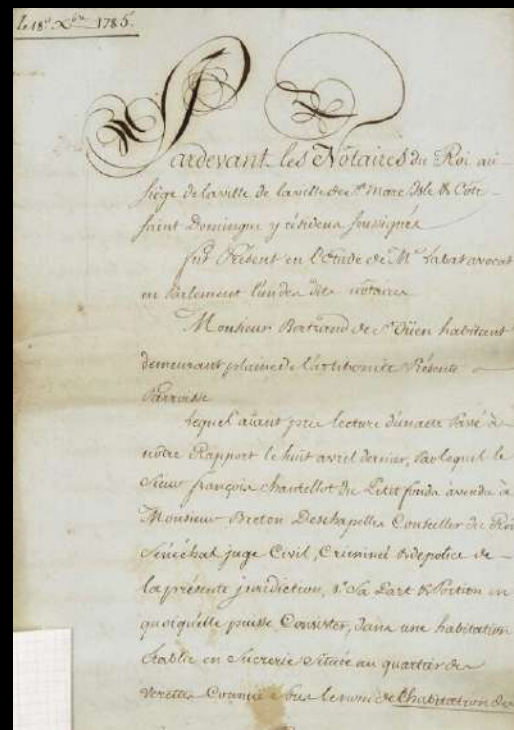 Le 18e Xbre 1785.
Pardevant les Notaires du Roi au
siège de la ville de la ville de St Marc Isle & Côte
saint Domingue y résidens soussignés
fut Présent en l'Etude de Me Labat avocat
en Parlement l'un des dits notaires
Monsieur Bertrand de St Oüen habitant
demeurant plaine de l'artibonite Présente
Parroisse
Lequel aïant pris lecture d'un acte Passé à
nôtre Rapport le huit avril dernier, Par lequel le
Sieur françois chautellot du Petit fonds a vendu à
Monsieur Breton Deschapelles Conseiller du Roi
Sénéchal juge Civil, Criminel & de police de
la présente jurisdiction, 1° Sa Part & Portion en
quoi qu'elle puisse Consister, dans une habitation
Etablie en Sucrerie Située au quartier des
Verettes Connüe Sous le nom de L'habitation de